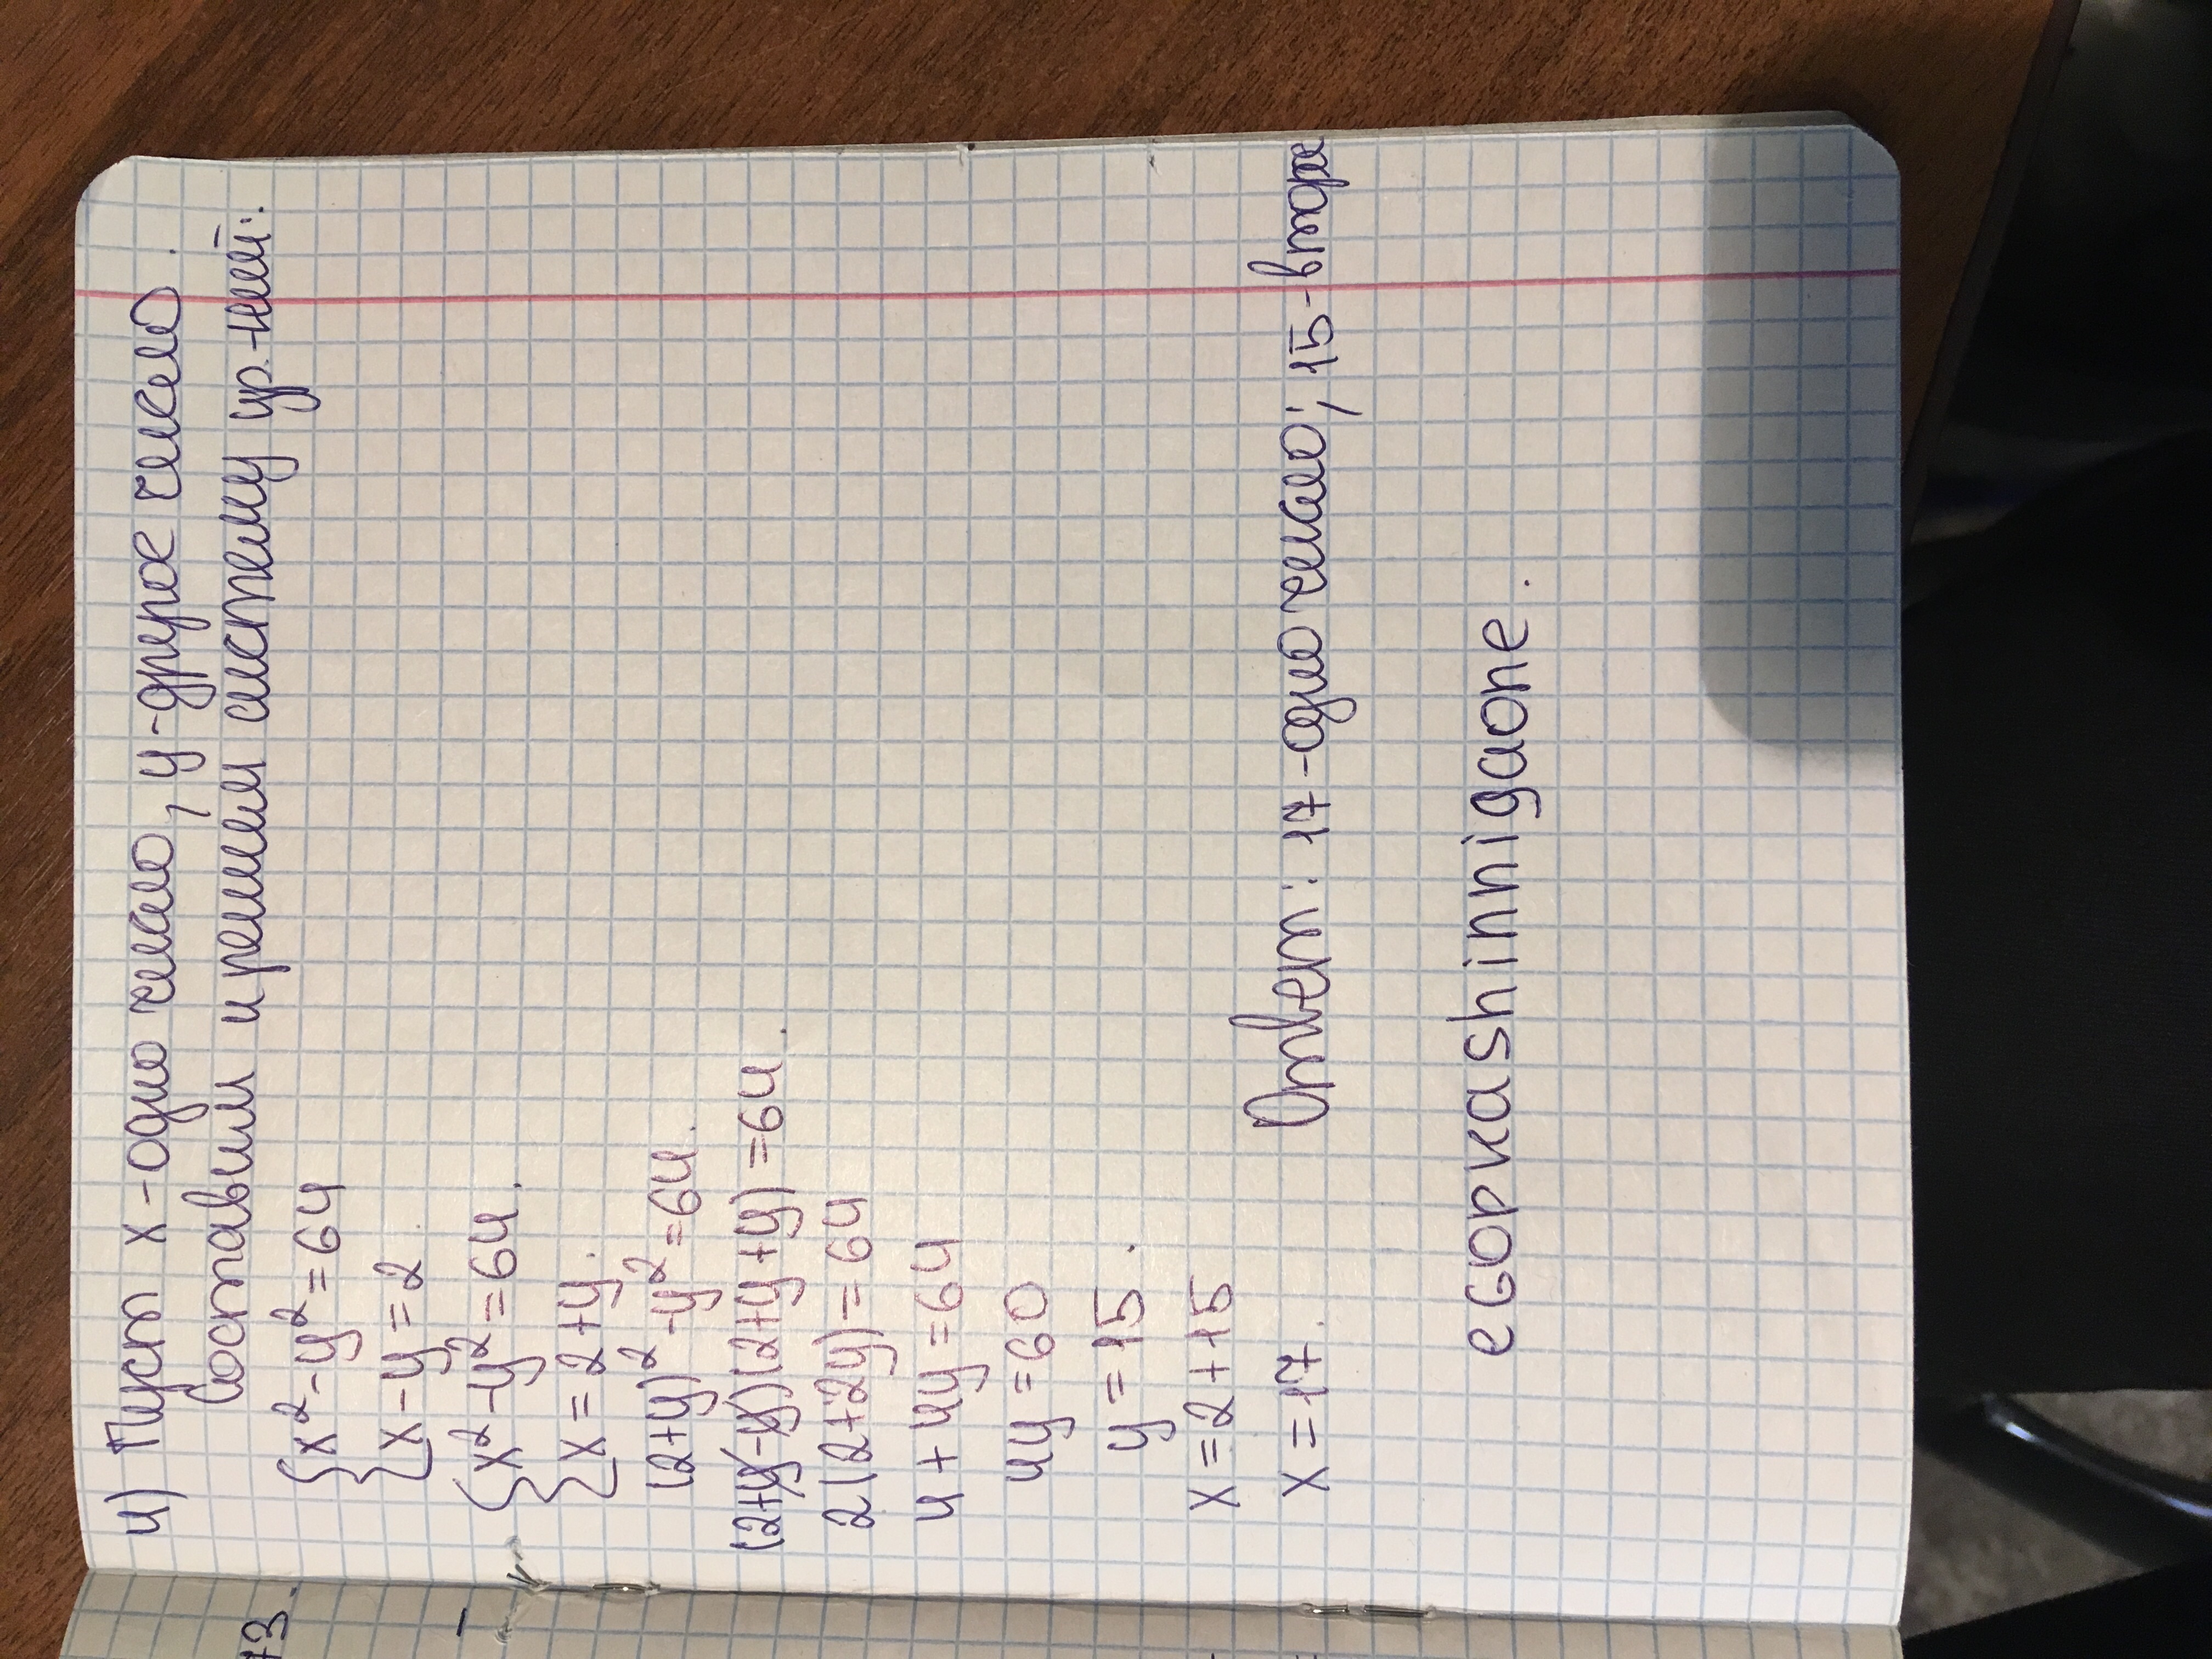 4) Пуст x - одно число, y - другое число.
Составим и решим систему ур-ний:
{x² - y² = 64
{x - y = 2
{x² - y² = 64.
{x = 2 + y.
(2+y)² - y² = 64.
(2+y-y)(2+y+y) = 64.
2(2+2y) = 64
4 + 4y = 64
4y = 60
y = 15.
x = 2 + 15
x = 17.
Ответ: 17 - одно число; 15 - второе
egorkashinnigaone.
73.